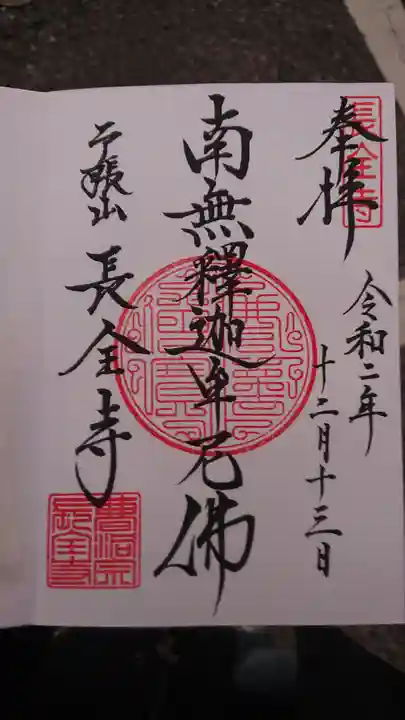 奉拝
長全寺
令和二年
十二月十三日
南無釋迦牟尼佛
長全寺